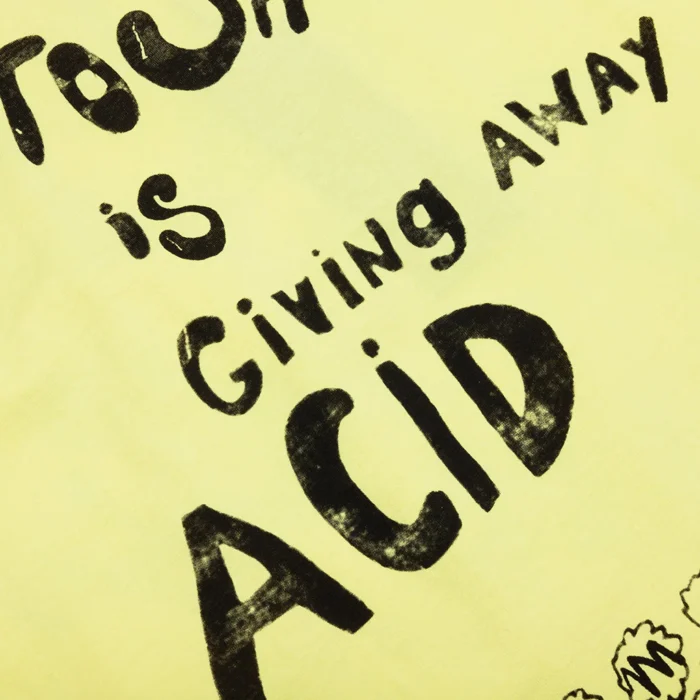 is
GiViNg AWAY
ACiD